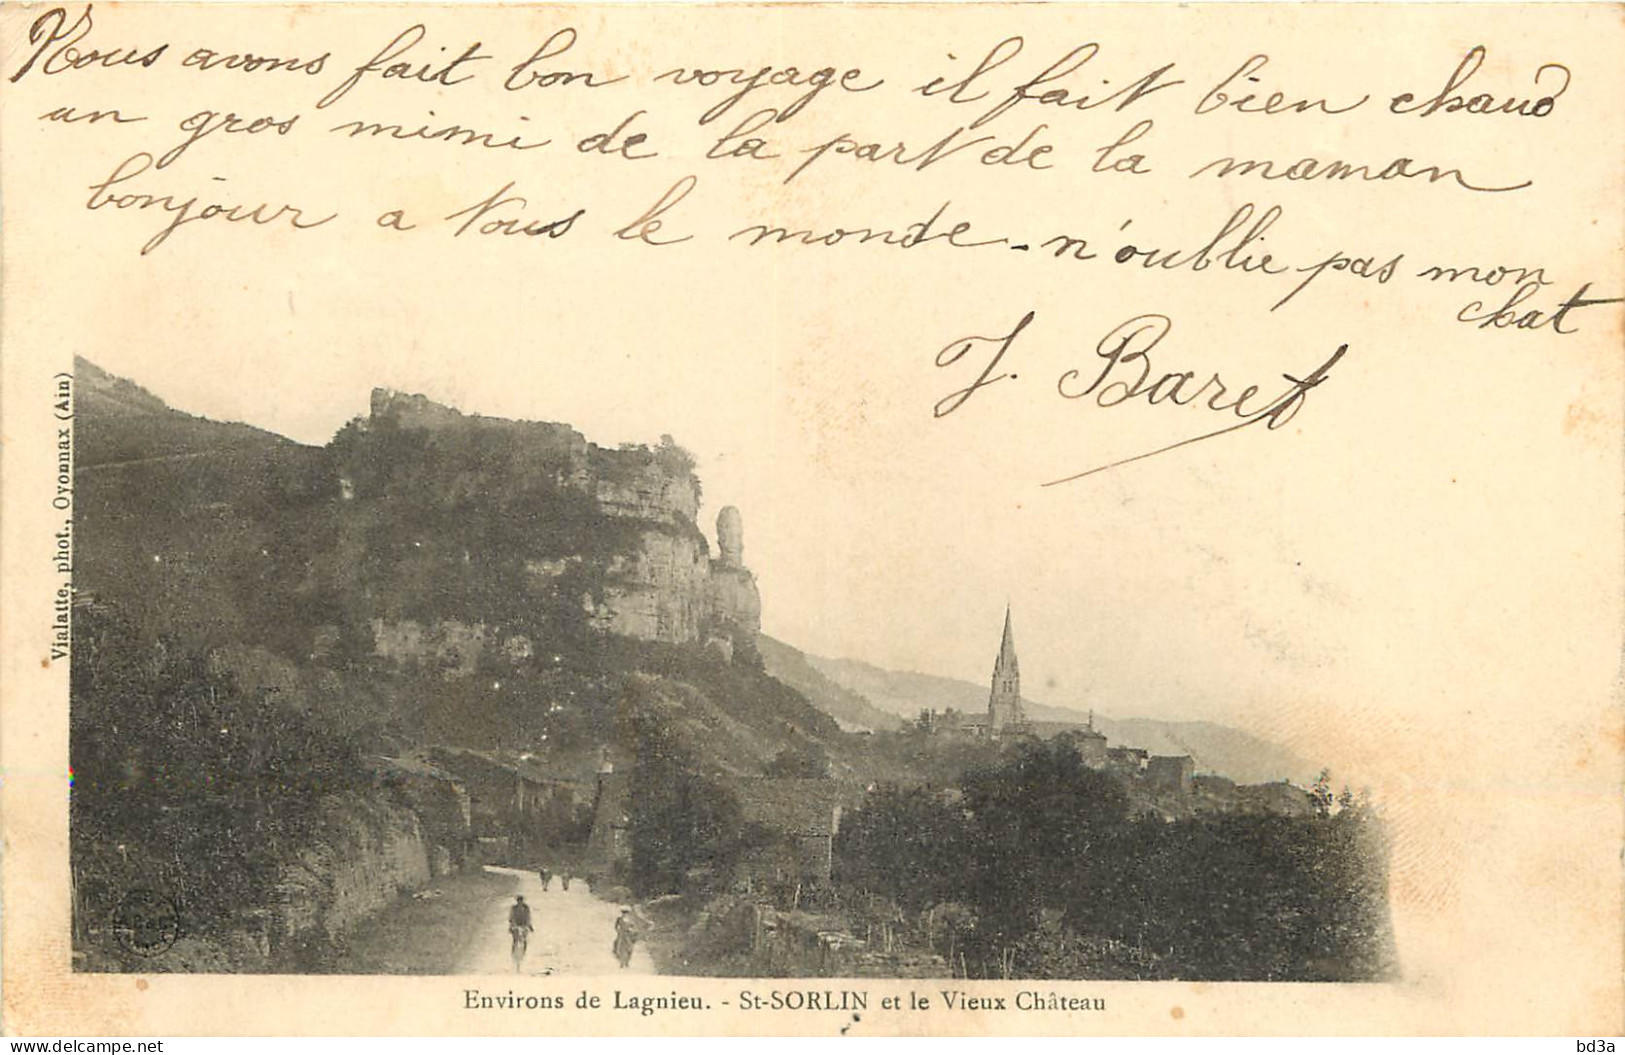 Nous avons fait bon voyage il fait bien chaud
un gros mimi de la part de la maman
bonjour a tous le monde - n'oublie pas mon
chat
J. Baret
Vialatte, phot., Oyonnax (Ain)
Environs de Lagnieu. - St-SORLIN et le Vieux Château
www.delcampe.net
bd3a